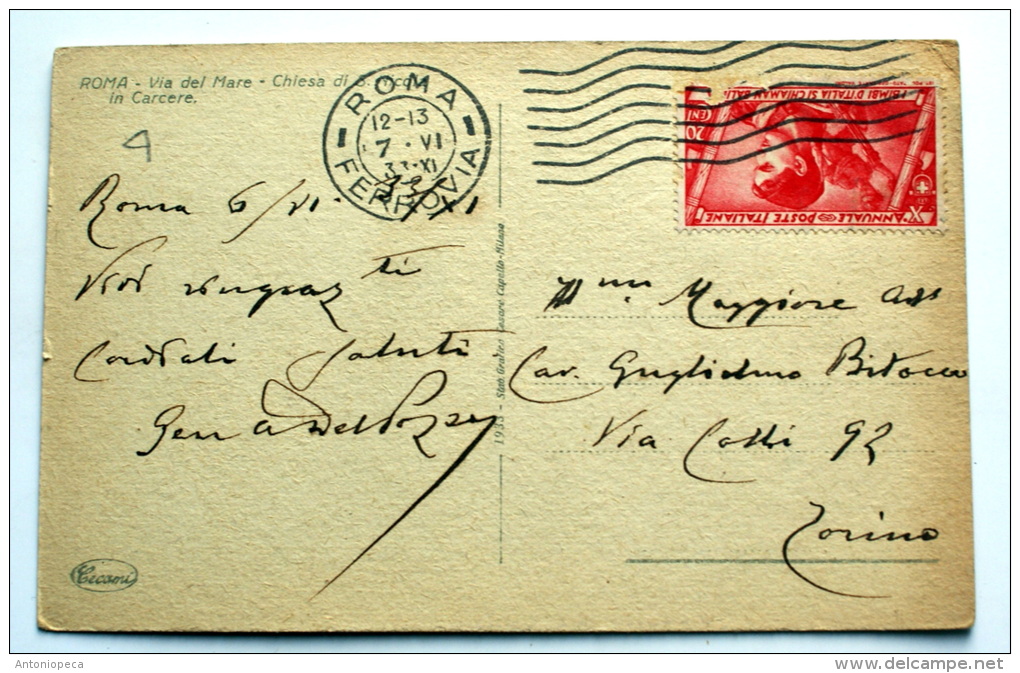 ROMA - Via del Mare - Chiesa di S. Nicola
in Carcere.
ROMA
12-13
7 · VI
33·XI
FERROVIA
20
CENT
I BIMBI D'ITALIA SI CHIAMAN BALILLA
X ANNUALE POSTE ITALIANE
Roma 6/VI XI
Vivi ringraz ti
Cordiali saluti
Gen Dal Pozzo
1933 - Stab. Grafico Cesare Capello - Milano
Maggiore
Cav. Guglielmo Bitocco
Via Colli 92
Torino
Cecami
Antoniopeca
delcampe.net